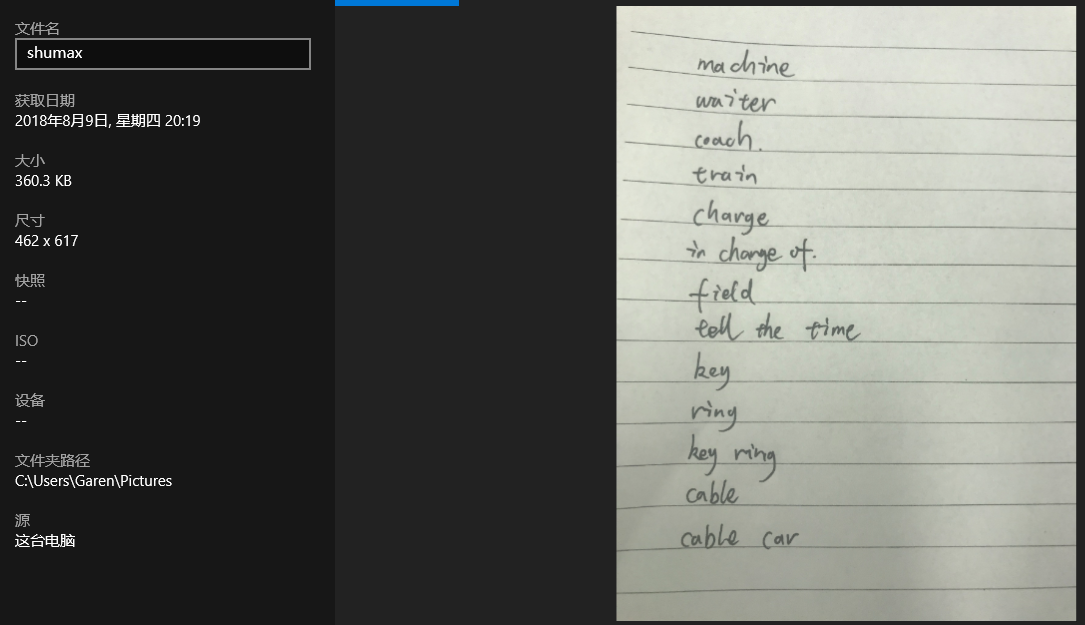 文件名
shumax
获取日期
2018年8月9日, 星期四 20:19
大小
360.3 KB
尺寸
462 x 617
快照
--
ISO
--
设备
--
文件夹路径
C:\Users\Garen\Pictures
源
这台电脑
machine
waiter
coach.
train
charge
in charge of.
field
tell the time
key
ring
key ring
cable
cable car